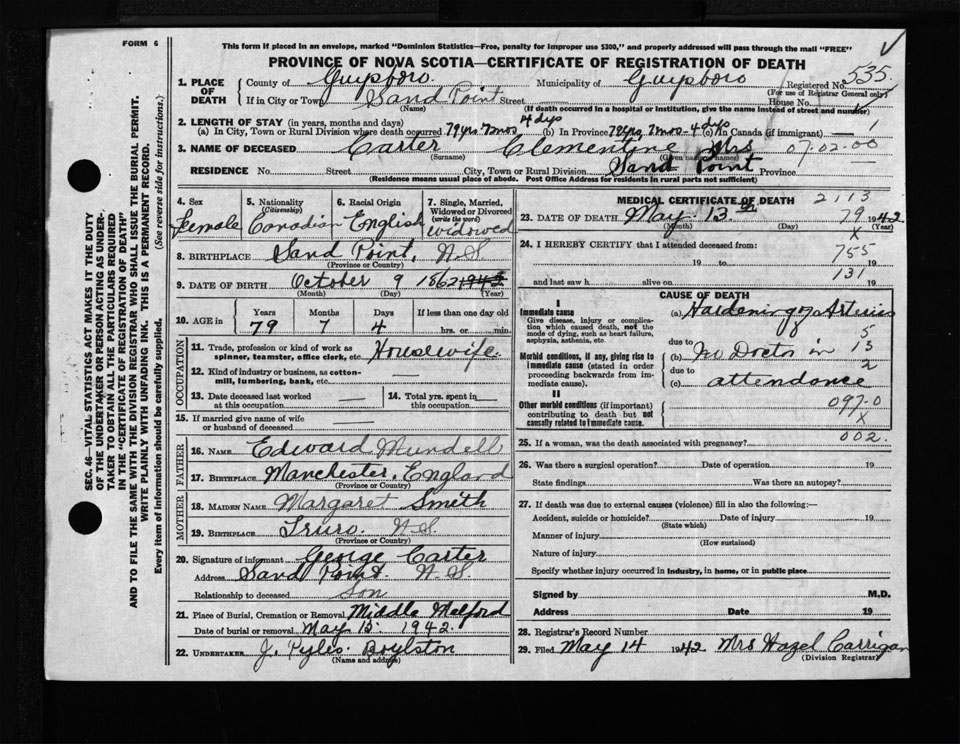 FORM 6
This form if placed in an envelope, marked "Dominion Statistics—Free, penalty for improper use $300," and properly addressed will pass through the mail "FREE"
PROVINCE OF NOVA SCOTIA—CERTIFICATE OF REGISTRATION OF DEATH
1. PLACE OF DEATH County of Guysboro Municipality of Guysboro Registered No. 535
(For use of Registrar General only)
If in City or Town Sand Point Street House No.
(Name) (If death occurred in a hospital or institution, give the name instead of street and number)
2. LENGTH OF STAY (in years, months and days) 4 dys
(a) In City, Town or Rural Division where death occurred 79 yrs 7 mos (b) In Province 79 yrs 7 mos - 4 dys (c) In Canada (if immigrant) — 1
3. NAME OF DECEASED Carter Clementine Mrs 07.02.00
(Surname) (Given name or names)
RESIDENCE No. Street City, Town or Rural Division Sand Point Province —
(Residence means usual place of abode. Post Office Address for residents in rural parts not sufficient)
4. Sex 5. Nationality (Citizenship) 6. Racial Origin 7. Single, Married, Widowed or Divorced (write the word)
Female Canadian English widowed
8. BIRTHPLACE Sand Point, N.S
(Province or Country)
9. DATE OF BIRTH October 9 1862
(Month) (Day) (Year)
10. AGE in Years Months Days If less than one day old
79 7 4 hrs. or min.
OCCUPATION
11. Trade, profession or kind of work as spinner, teamster, office clerk, etc. Housewife
12. Kind of industry or business, as cotton-mill, lumbering, bank, etc. —
13. Date deceased last worked at this occupation — 14. Total yrs. spent in this occupation —
15. If married give name of wife or husband of deceased —
FATHER
16. NAME Edward Mundell
17. BIRTHPLACE Manchester, England
(Province or Country)
MOTHER
18. MAIDEN NAME Margaret Smith
19. BIRTHPLACE Truro. N.S
(Province or Country)
20. Signature of informant George Carter
Address Sand Point. N.S.
Relationship to deceased Son
21. Place of Burial, Cremation or Removal Middle Melford
Date of burial or removal May 15. 1942.
22. UNDERTAKER J. Pyles. Boylston
(Name and address)
MEDICAL CERTIFICATE OF DEATH 2113
23. DATE OF DEATH May. 13.th 79 1942
(Month) (Day) (Year)
X
24. I HEREBY CERTIFY that I attended deceased from:
755
19 to 19
131
and last saw h alive on 19
CAUSE OF DEATH
I
Immediate cause
Give disease, injury or complication which caused death, not the mode of dying, such as heart failure, asphyxia, asthenia, etc.
(a) Hardening of Arteries
due to 5
Morbid conditions, if any, giving rise to immediate cause (stated in order proceeding backwards from immediate cause).
(b) No Doctor in 13
due to 2
(c) attendance
II
Other morbid conditions (if important) contributing to death but not causally related to immediate cause.
097.0
X
25. If a woman, was the death associated with pregnancy? 002.
26. Was there a surgical operation? Date of operation 19
State findings Was there an autopsy?
27. If death was due to external causes (violence) fill in also the following:—
Accident, suicide or homicide? Date of injury 19
(State which)
Manner of injury
(How sustained)
Nature of injury
Specify whether injury occurred in industry, in home, or in public place
Signed by M.D.
Address Date 19
28. Registrar's Record Number
29. Filed May 14 1942 Mrs Hazel Carrigan
(Division Registrar)
SEC. 46—VITAL STATISTICS ACT MAKES IT THE DUTY
OF THE UNDERTAKER OR PERSON ACTING AS UNDER-
TAKER TO OBTAIN ALL THE PARTICULARS REQUIRED
IN THE "CERTIFICATE OF REGISTRATION OF DEATH"
AND TO FILE THE SAME WITH THE DIVISION REGISTRAR WHO SHALL ISSUE THE BURIAL PERMIT.
WRITE PLAINLY WITH UNFADING INK. THIS IS A PERMANENT RECORD.
Every item of information should be carefully supplied. (See reverse side for instructions.)